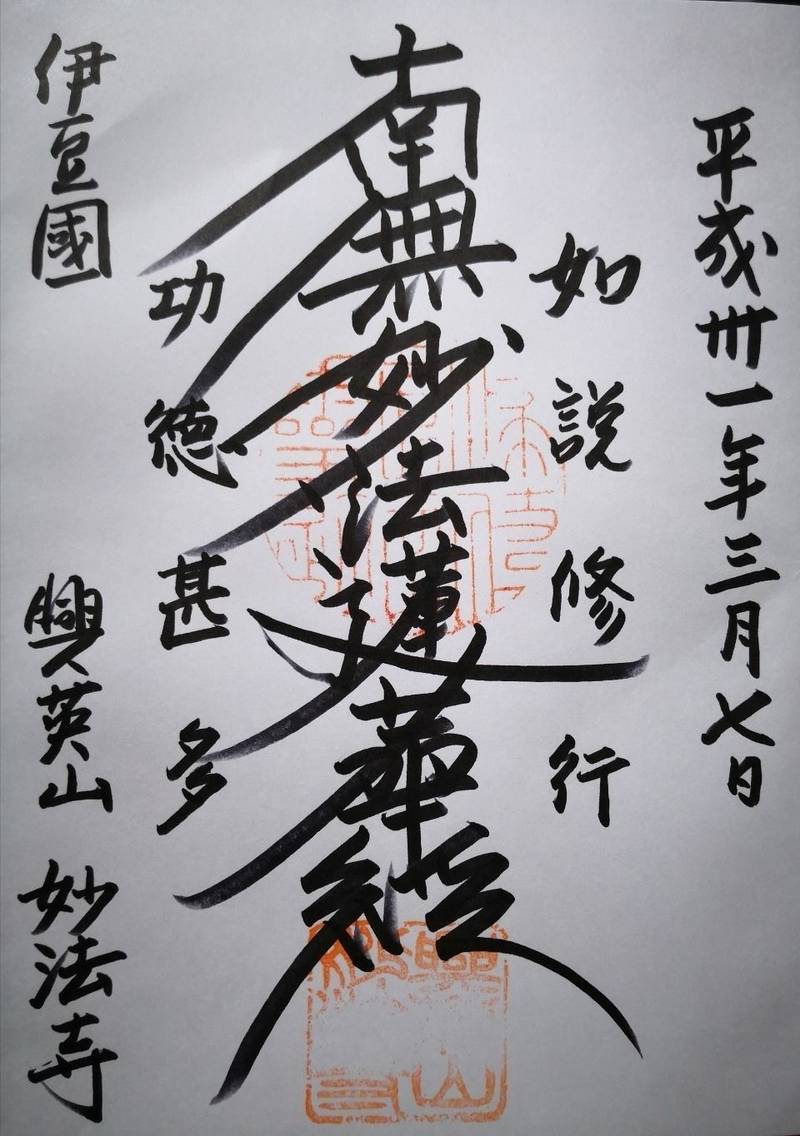 平成卅一年三月七日
如説修行
南無妙法蓮華経
功徳甚多
伊豆國
興英山 妙法寺